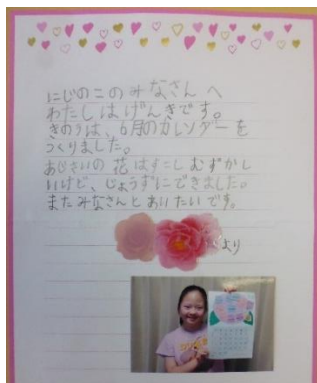 にじのこのみなさんへ
わたしはげんきです。
きのうは、6月のカレンダーを
つくりました。
あじさいの花はすこしむずかし
いけど、じょうずにできました。
またみなさんとあいたいです。
より